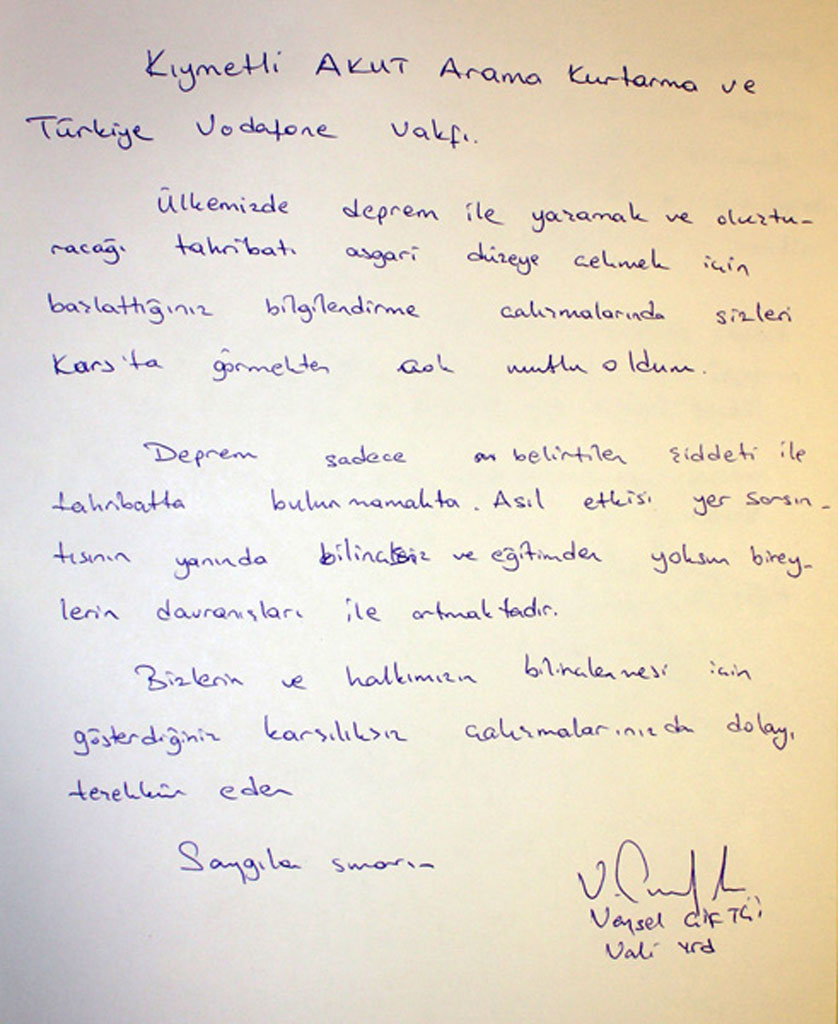 Kıymetli AKUT Arama Kurtarma ve
Türkiye Vodafone Vakfı.
Ülkemizde deprem ile yaşamak ve oluştu-
racağı tahribatı asgari düzeye çekmek için
başlattığınız bilgilendirme çalışmalarında sizleri
Kars'ta görmekten çok mutlu oldum.
Deprem sadece belirtilen şiddeti ile
tahribatta bulunmamakta. Asıl etkisi yer sarsın-
tısının yanında bilinçsiz ve eğitimden yoksun birey-
lerin davranışları ile artmaktadır.
Bizlerin ve halkımızın bilinçlenmesi için
gösterdiğiniz karşılıksız çalışmalarınızdan dolayı
teşekkür eder
Saygılar sunarım
Veysel ÇİFTÇİ
Vali Yrd